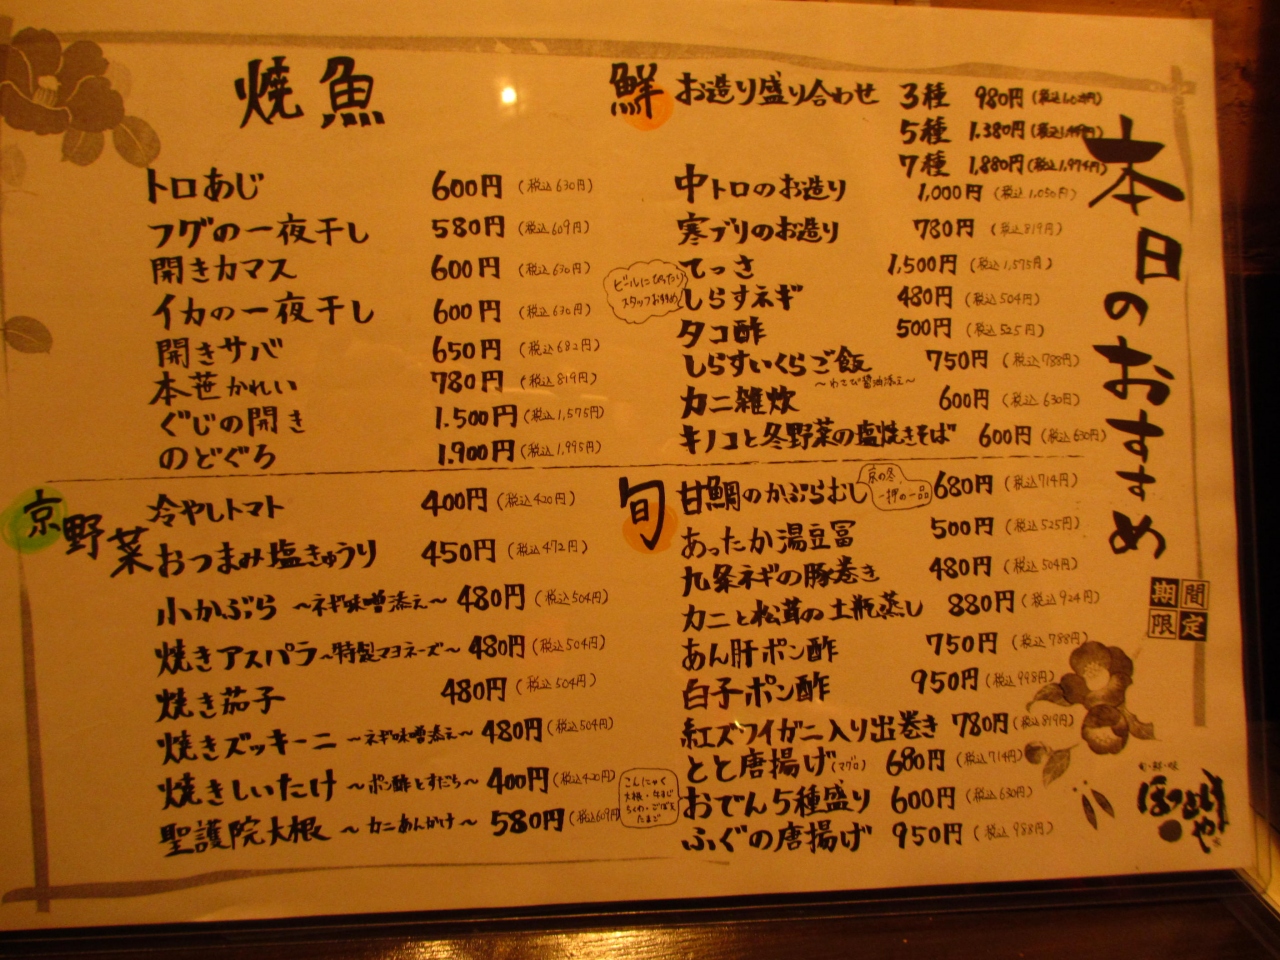 本日のおすすめ
期間限定
鮮
お造り盛り合わせ 3種 980円
5種 1,380円
7種 1,880円(税込1,974円)
中トロのお造り 1,000円 (税込1,050円)
寒ブリのお造り 780円 (税込819円)
てっさ 1,500円 (税込1,575円)
ビールにぴったり
スタッフおすすめ
しらすネギ 480円 (税込504円)
タコ酢 500円 (税込525円)
しらすいくらご飯 750円 (税込788円)
～わさび醤油添え～
カニ雑炊 600円 (税込630円)
キノコと冬野菜の塩焼きそば 600円 (税込630円)
焼魚
トロあじ 600円 (税込630円)
フグの一夜干し 580円 (税込609円)
開きカマス 600円 (税込630円)
イカの一夜干し 600円 (税込630円)
開きサバ 650円 (税込682円)
本笹かれい 780円 (税込819円)
ぐじの開き 1,500円 (税込1,575円)
のどぐろ 1,900円 (税込1,995円)
旬
甘鯛のかぶらむし 680円 (税込714円)
京の冬、
一押の一品
あったか湯豆冨 500円 (税込525円)
九条ネギの豚巻き 480円 (税込504円)
カニと松茸の土瓶蒸し 880円 (税込924円)
あん肝ポン酢 750円 (税込788円)
白子ポン酢 950円 (税込998円)
紅ズワイガニ入り出巻き 780円 (税込819円)
とと唐揚げ(マグロ) 680円 (税込714円)
おでん5種盛り 600円 (税込630円)
こんにゃく
大根・牛すじ
ちくわ・ごぼ天
たまご
ふぐの唐揚げ 950円 (税込988円)
京野菜
冷やしトマト 400円 (税込420円)
おつまみ塩きゅうり 450円 (税込472円)
小かぶら ～ネギ味噌添え～ 480円 (税込504円)
焼きアスパラ ～特製マヨネーズ～ 480円 (税込504円)
焼き茄子 480円 (税込504円)
焼きズッキーニ ～ネギ味噌添え～ 480円 (税込504円)
焼きしいたけ ～ポン酢とすだち～ 400円 (税込420円)
聖護院大根 ～カニあんかけ～ 580円 (税込609円)